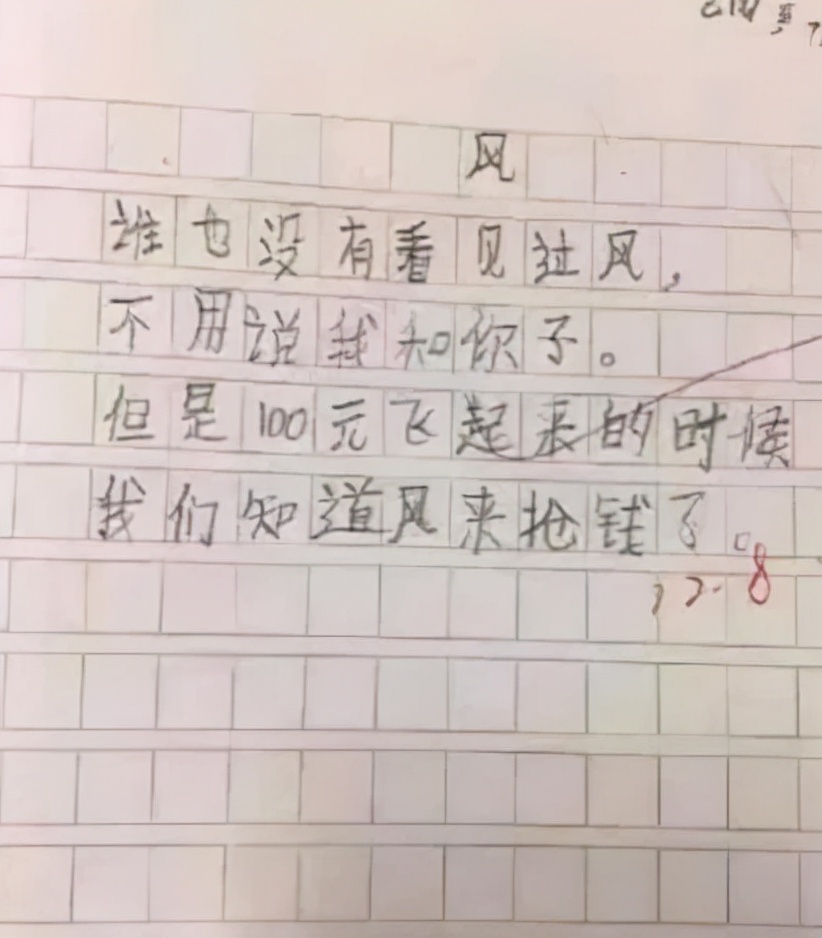 风
谁也没有看见过风,
不用说我和你了。
但是100元飞起来的时候
我们知道风来抢钱了。
12.8